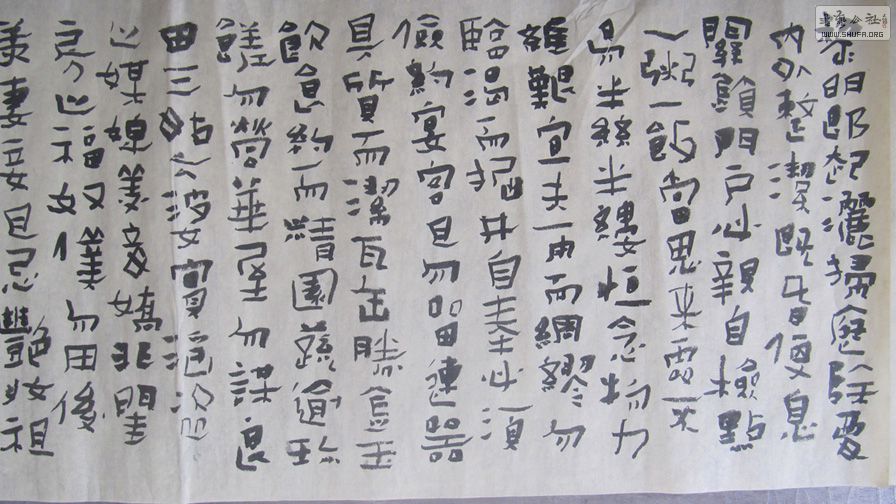 黎明即起灑掃庭除要
內外整潔既昏便息
關鎖門戶必親自檢點
一粥一飯當思來處不
易半絲半縷恒念物力
維艱宜未雨而綢繆勿
臨渴而掘井自奉必須
儉約宴客且勿留連器
具質而潔瓦缶勝金玉
飲食約而精園蔬逾珍
饈勿營華屋勿謀良
田三姑六婆實淫盜
之媒婢美妾嬌非閨
房之福奴僕勿用俊
美妻妾且忌艷妝祖
書法公社
WWW.SHUFA.ORG